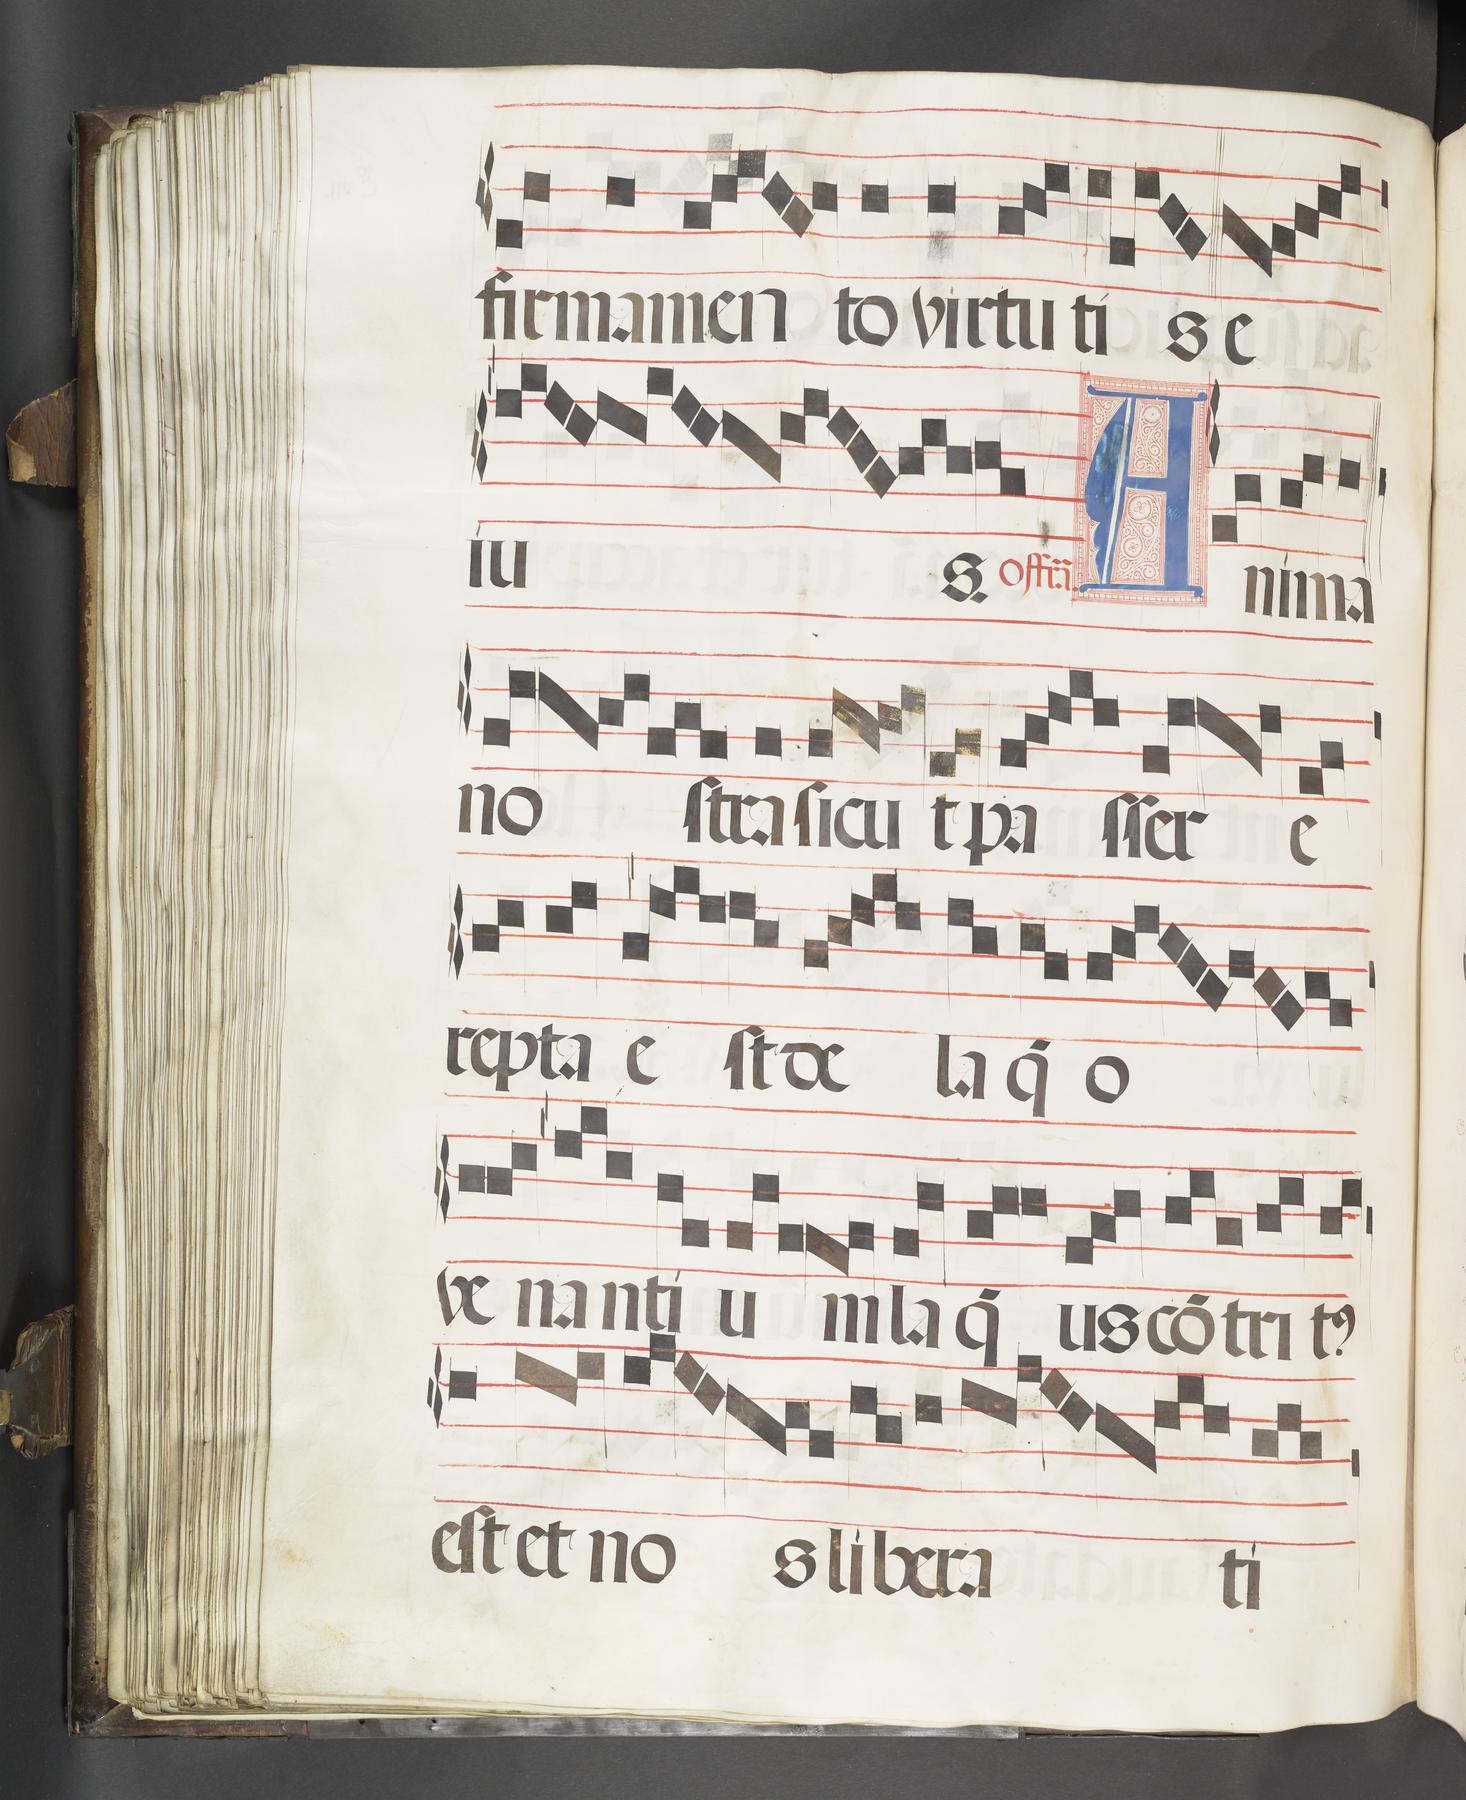 firmamen to virtu ti s e
iu s. offrã. A nima
no stra sicu t pa sser e
repta e st de la q̃ o
ve na nti u m la q̃ us cõ tri tꝰ
est et no s libera ti